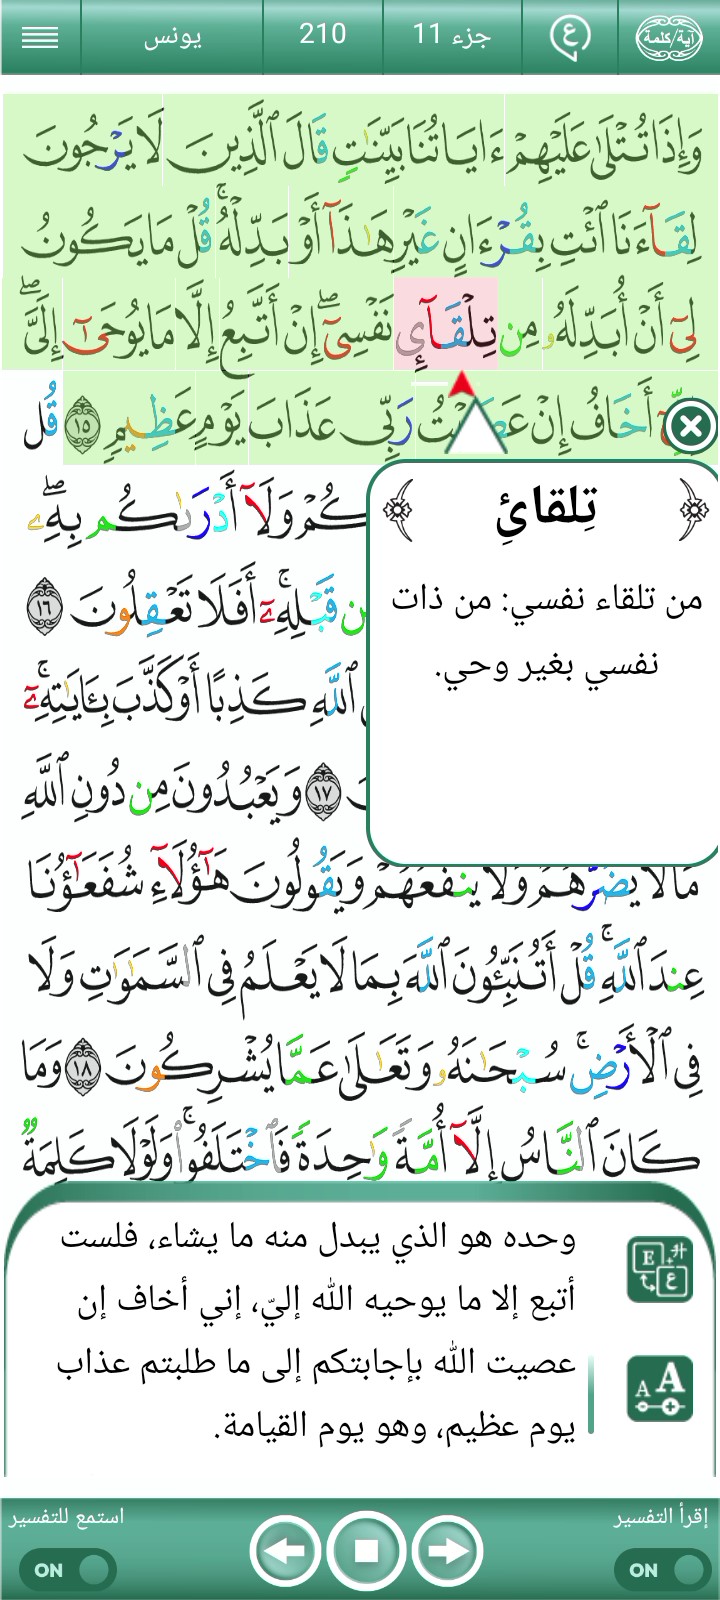 آية/كلمة
ع
جزء 11
210
يونس
وَإِذَا تُتْلَىٰ عَلَيْهِمْ ءَايَاتُنَا بَيِّنَٰتٍ قَالَ ٱلَّذِينَ لَا يَرْجُونَ
لِقَآءَنَا ٱئْتِ بِقُرْءَانٍ غَيْرِ هَٰذَآ أَوْ بَدِّلْهُ ۚ قُلْ مَا يَكُونُ
لِىٓ أَنْ أُبَدِّلَهُۥ مِن تِلْقَآئِ نَفْسِىٓ ۖ إِنْ أَتَّبِعُ إِلَّا مَا يُوحَىٰٓ إِلَىَّ ۖ
أَخَافُ إِنْ رَبِّى عَذَابَ يَوْمٍ عَظِيمٍ ١٥ قُل
وَلَآ أَدْرَىٰكُم بِهِۦ ۖ
قَبْلِهِۦٓ ۚ أَفَلَا تَعْقِلُونَ ١٦
ٱللَّهِ كَذِبًا أَوْ كَذَّبَ بِـَٔايَٰتِهِۦٓ ۚ
١٧ وَيَعْبُدُونَ مِن دُونِ ٱللَّهِ
مَا لَا يَضُرُّهُمْ وَلَا يَنفَعُهُمْ وَيَقُولُونَ هَٰٓؤُلَآءِ شُفَعَٰٓؤُنَا
عِندَ ٱللَّهِ ۚ قُلْ أَتُنَبِّـُٔونَ ٱللَّهَ بِمَا لَا يَعْلَمُ فِى ٱلسَّمَٰوَٰتِ وَلَا
فِى ٱلْأَرْضِ ۚ سُبْحَٰنَهُۥ وَتَعَٰلَىٰ عَمَّا يُشْرِكُونَ ١٨ وَمَا
كَانَ ٱلنَّاسُ إِلَّآ أُمَّةً وَٰحِدَةً فَٱخْتَلَفُوا۟ ۚ وَلَوْلَا كَلِمَةٌ
تِلقائِ
من تلقاء نفسي: من ذات
نفسي بغير وحي.
وحده هو الذي يبدل منه ما يشاء، فلست
أتبع إلا ما يوحيه الله إليّ، إني أخاف إن
عصيت الله بإجابتكم إلى ما طلبتم عذاب
يوم عظيم، وهو يوم القيامة.
E
ع
A A
إقرأ التفسير
استمع للتفسير
ON
ON